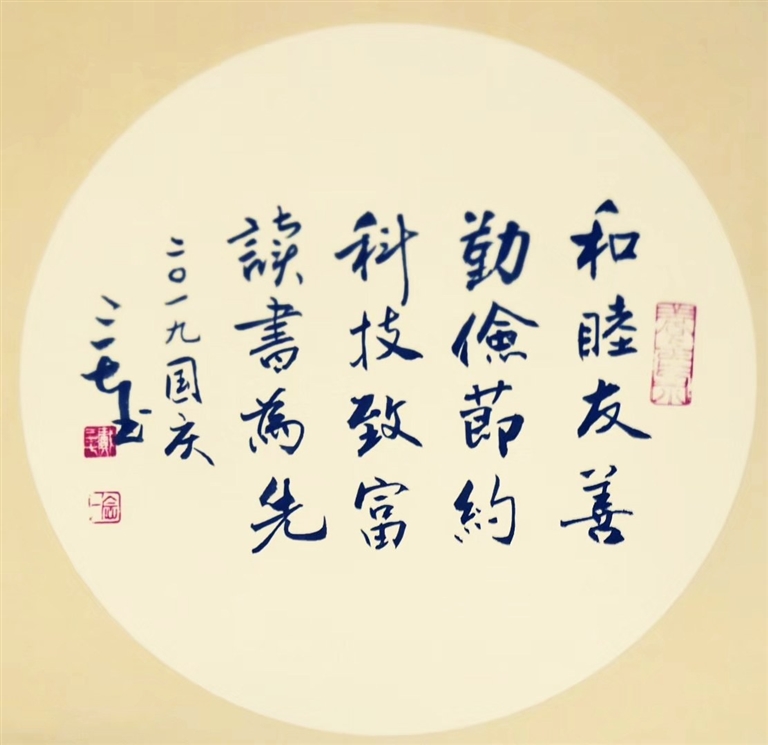 和睦友善
勤儉節約
科技致富
讀書為先
二〇一九国庆